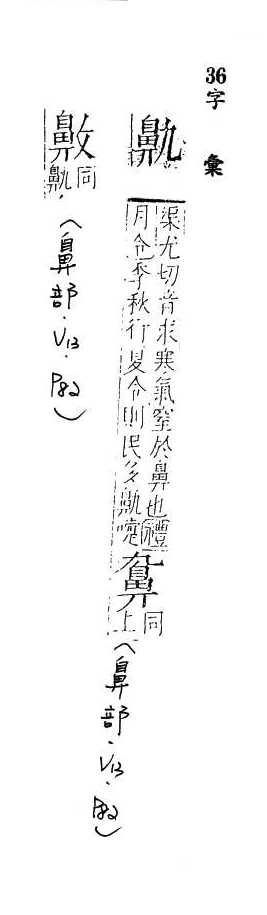 36字彙
鼽
渠尤切音求寒氣窒於鼻也禮
月令季秋行夏令則民多鼽嚏
同上
(鼻部.V13.P82)
同鼽.
(鼻部.V13.P82)